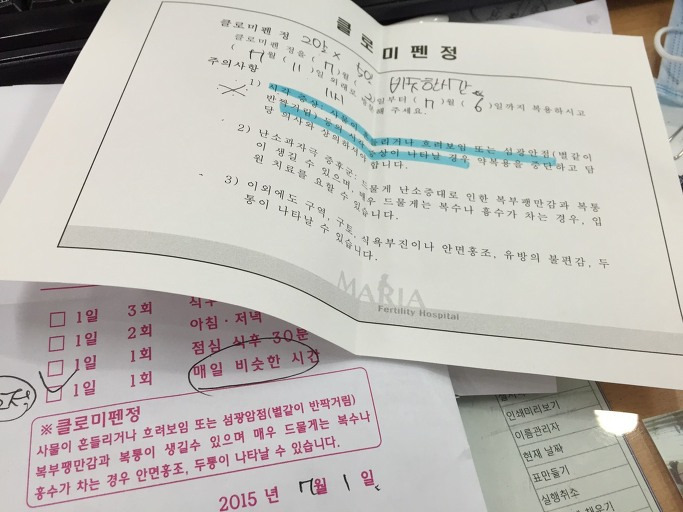 클로미펜정
클로미펜 정 20알 x
클로미펜 정을 ( 7 )월 ( 2 )일부터 ( 7 )월 ( 6 )일까지 복용하시고
( 7 )월 ( 11 )일 외래로 해 주세요.
비슷한시간
주의사항
1) 시각 증상: 사물이 흔들리거나 흐려보임 또는 섬광암점(별같이
반짝거림) 등의 시각 증상이 나타날 경우 약복용을 중단하고 담
당 의사와 상의하셔야 합니다.
2) 난소과자극 증후군: 드물게 난소증대로 인한 복부팽만감과 복통
이 생길 수 있으며, 매우 드물게는 복수나 흉수가 차는 경우, 입
원 치료를 요할 수 있습니다.
3) 이외에도 구역, 구토, 식욕부진이나 안면홍조, 유방의 불편감, 두
통이 나타날 수 있습니다.
MARIA
Fertility Hospital
□ 1일 3회
□ 1일 2회 아침·저녁
□ 1일 1회 점심 식후 30분
□ 1일 1회 매일 비슷한 시간
※클로미펜정
사물이 흔들리거나 흐려보임 또는 섬광암점(별같이 반짝거림)
복부팽만감과 복통이 생길수 있으며 매우 드물게는 복수나
흉수가 차는 경우 안면홍조, 두통이 나타날 수 있습니다.
2015 년 7월 1일
인쇄미리보기
이름관리자
현재 날짜
표만들기
실행취소